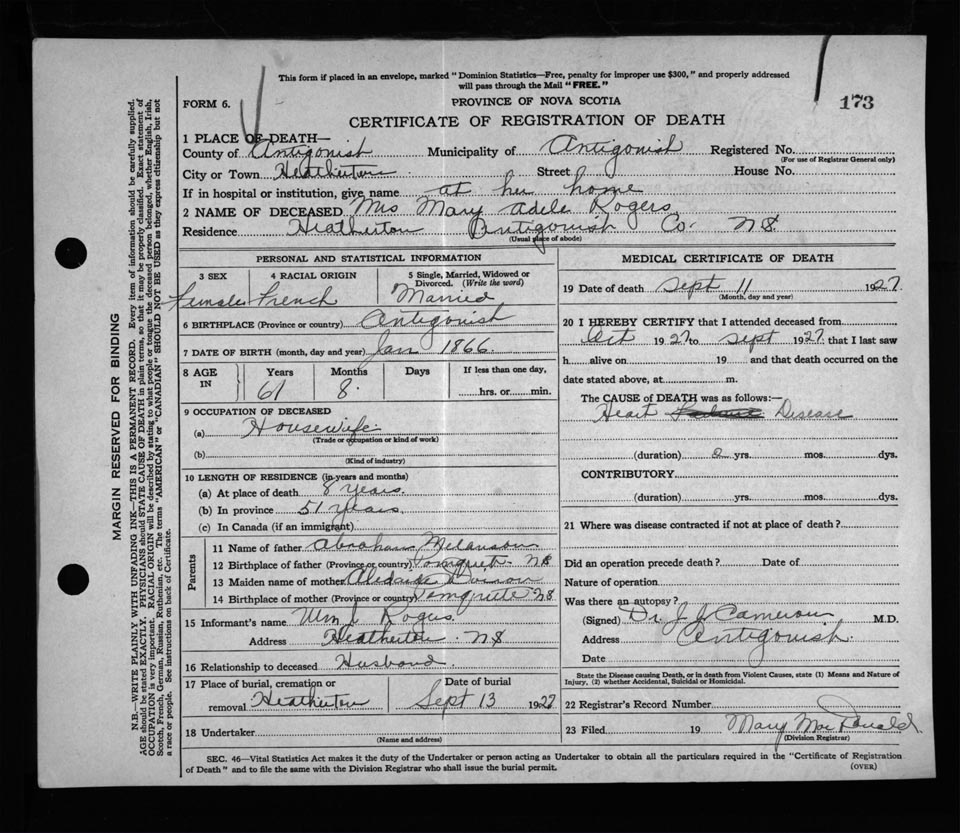 This form if placed in an envelope, marked "Dominion Statistics—Free, penalty for improper use $300," and properly addressed
will pass through the Mail "FREE."
FORM 6.
PROVINCE OF NOVA SCOTIA
173
CERTIFICATE OF REGISTRATION OF DEATH
1 PLACE OF DEATH—
County of Antigonish Municipality of Antigonish Registered No.
(For use of Registrar General only)
City or Town Heatherton Street House No.
If in hospital or institution, give name at her home
2 NAME OF DECEASED Mrs Mary Adele Rogers
Residence Heatherton Antigonish Co. N S.
(Usual place of abode)
PERSONAL AND STATISTICAL INFORMATION
3 SEX 4 RACIAL ORIGIN 5 Single, Married, Widowed or
Divorced. (Write the word)
Female French Married
6 BIRTHPLACE (Province or country) Antigonish
7 DATE OF BIRTH (month, day and year) Jan 1866.
8 AGE IN Years Months Days If less than one day,
61 8 hrs. or min.
9 OCCUPATION OF DECEASED
(a) Housewife.
(Trade or occupation or kind of work)
(b)
(Kind of industry)
10 LENGTH OF RESIDENCE (in years and months)
(a) At place of death 8 years.
(b) In province 51 years.
(c) In Canada (if an immigrant)
Parents
11 Name of father Abraham Melanson
12 Birthplace of father (Province or country) N S
13 Maiden name of mother
14 Birthplace of mother (Province or country) N S
15 Informant's name Wm J. Rogers.
Address Heatherton N S
16 Relationship to deceased Husband.
17 Place of burial, cremation or
removal Heatherton
Date of burial
Sept 13 1927
18 Undertaker
(Name and address)
MEDICAL CERTIFICATE OF DEATH
19 Date of death Sept 11 1927
(Month, day and year)
20 I HEREBY CERTIFY that I attended deceased from
Oct 1927 to Sept 1927. that I last saw
h alive on 19 and that death occurred on the
date stated above, at m.
The CAUSE of DEATH was as follows:—
Heart Disease
(duration) 2 yrs. mos. dys.
CONTRIBUTORY.
(duration) yrs. mos. dys.
21 Where was disease contracted if not at place of death?
Did an operation precede death? Date of
Nature of operation
Was there an autopsy?
(Signed) Dr. J J Cameron M.D.
Address Antigonish.
Date
State the Disease causing Death, or in death from Violent Causes, state (1) Means and Nature of
Injury, (2) whether Accidental, Suicidal or Homicidal.
22 Registrar's Record Number
23 Filed 19 Mary MacDonald
(Division Registrar)
SEC. 46—Vital Statistics Act makes it the duty of the Undertaker or person acting as Undertaker to obtain all the particulars required in the "Certificate of Registration
of Death" and to file the same with the Division Registrar who shall issue the burial permit.
(OVER)
MARGIN RESERVED FOR BINDING
N.B.—WRITE PLAINLY WITH UNFADING INK—THIS IS A PERMANENT RECORD. Every item of information should be carefully supplied.
AGE should be stated EXACTLY. PHYSICIANS should STATE CAUSE OF DEATH in plain terms, so that it may be properly classified. Exact statement of
OCCUPATION is very important. RACIAL ORIGIN will be described by stating to what people or tongue the deceased person belonged, whether English, Irish,
Scotch, French, German, Russian, Ruthenian, etc. The terms "AMERICAN" or "CANADIAN" SHOULD NOT BE USED as they express citizenship but not
a race or people. See instructions on back of Certificate.